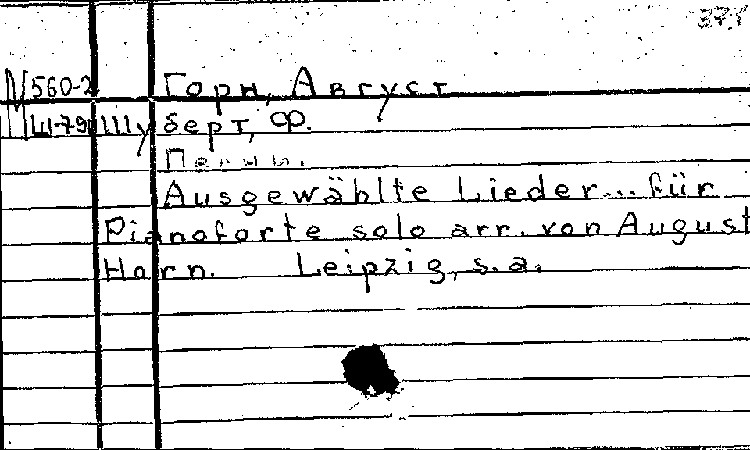 560-2 Горн, Август
Ш-79 Шуберт, Ф.
Песни.
Ausgewählte Lieder... für
Pianoforte solo arr. von August
Horn. Leipzig, s.a.